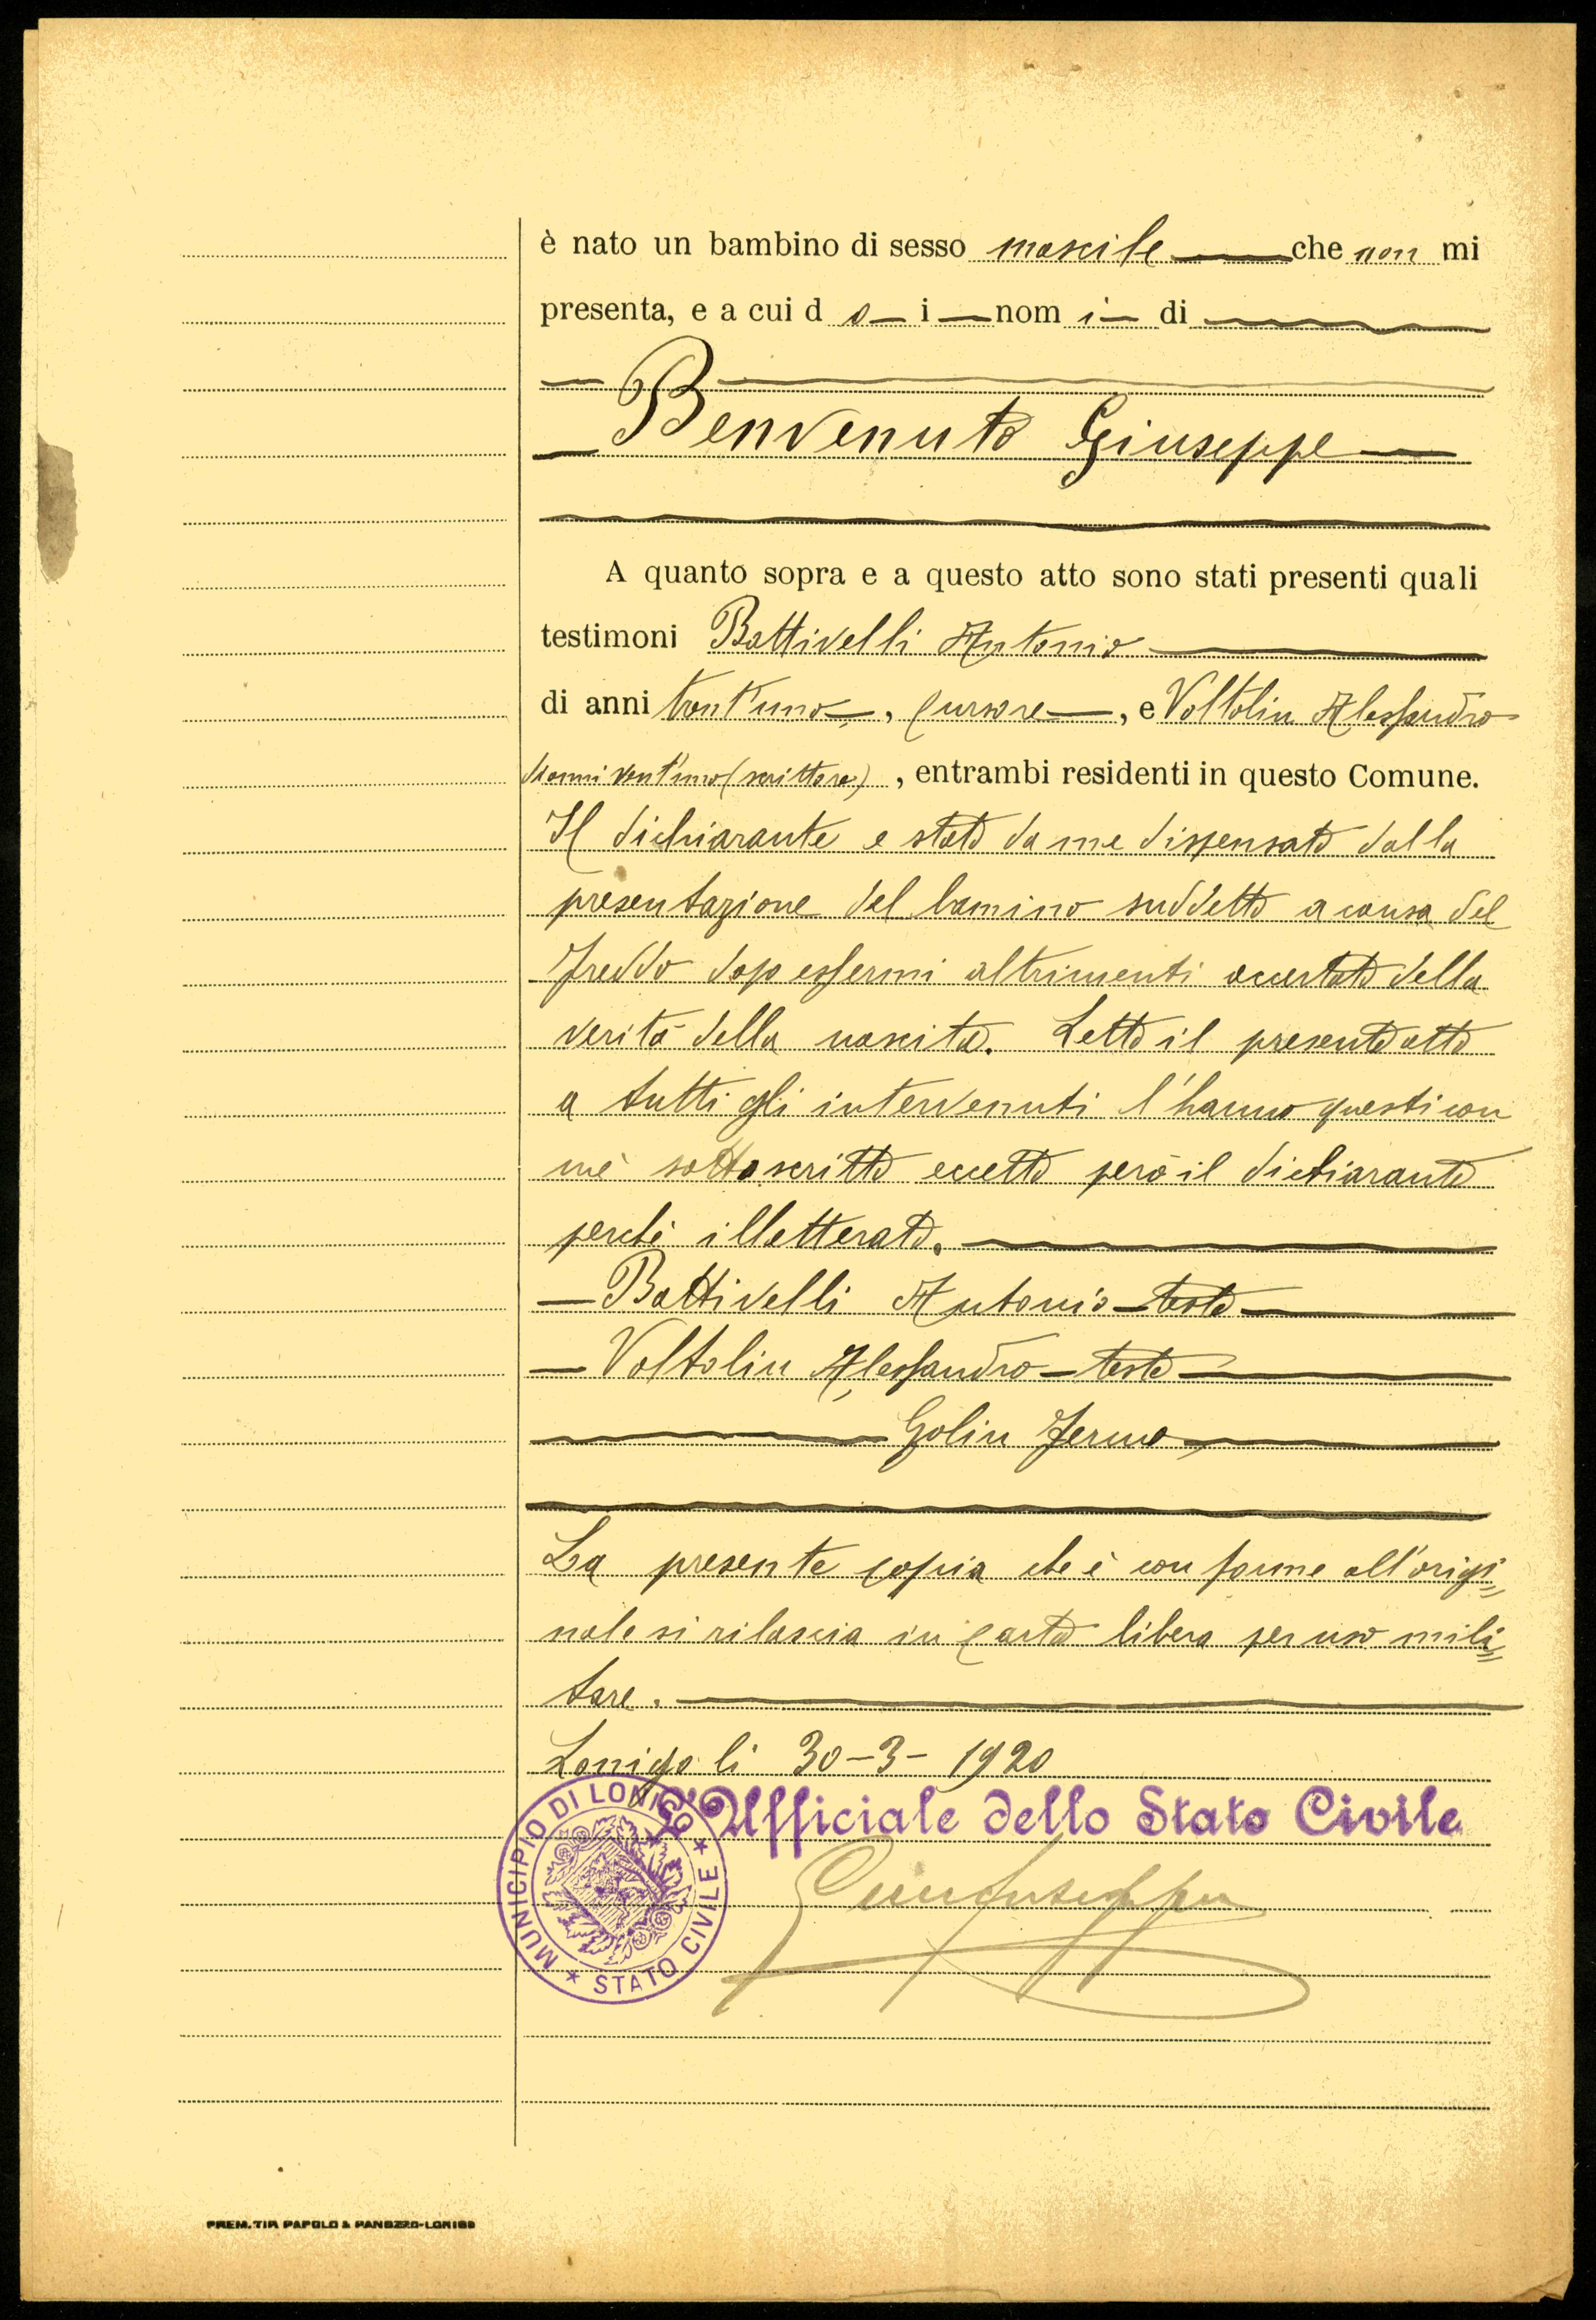 è nato un bambino di sesso mascile che non mi
presenta, e a cui d o i nom i di
Benvenuto Giuseppe
A quanto sopra e a questo atto sono stati presenti quali
testimoni Battivelli Antonio
di anni trent'uno, cursore, e Voltolin Alessandro
d'anni vent'uno (scrittore), entrambi residenti in questo Comune.
Il dichiarante e stato da me dispensato dalla
presentazione del bamino suddetto a causa del
freddo dopo essermi altrimenti accertato della
verità della nascita. Letto il presente atto
a tutti gli intervenuti l'hanno questi con
me sottoscritto eccetto però il dichiarante
perchè illetterato.
Battivelli Antonio teste
Voltolin Alessandro teste
Golin Fermo
La presente copia che è conforme all'origi=
nale si rilascia in carta libera per uso mili=
tare.
Lonigo li 30-3-1920
L'Ufficiale dello Stato Civile
MUNICIPIO DI LONIGO * STATO CIVILE *
PREM. TIP. PAPOLO & PANOZZO-LONIGO